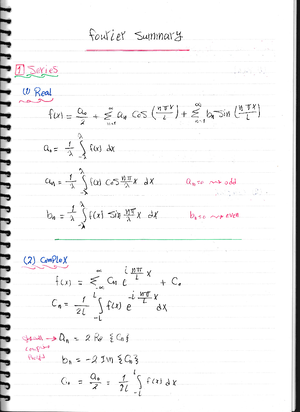 Fourier Summary
1 Series
(1) Real
f(x) = a₀/2 + Σ_{n=1}^{∞} aₙ cos(nπx/L) + Σ_{n=1}^{∞} bₙ sin(nπx/L)
a₀ = 1/λ ∫_{-λ}^{λ} f(x) dx
aₙ = 1/λ ∫_{-λ}^{λ} f(x) cos nπ/λ x dx aₙ=0 → odd
bₙ = 1/λ ∫_{-λ}^{λ} f(x) sin nπ/λ x dx bₙ=0 → even
(2) Complex
f(x) = Σ^{∞} Cₙ e^{i nπ/L x} + C₀
Cₙ = 1/2L ∫_{-L}^{L} f(x) e^{-i nπ/L x} dx
aₙ = 2 Re {Cₙ}
bₙ = -2 Im {Cₙ}
C₀ = a₀/2 = 1/2L ∫_{-L}^{L} f(x) dx